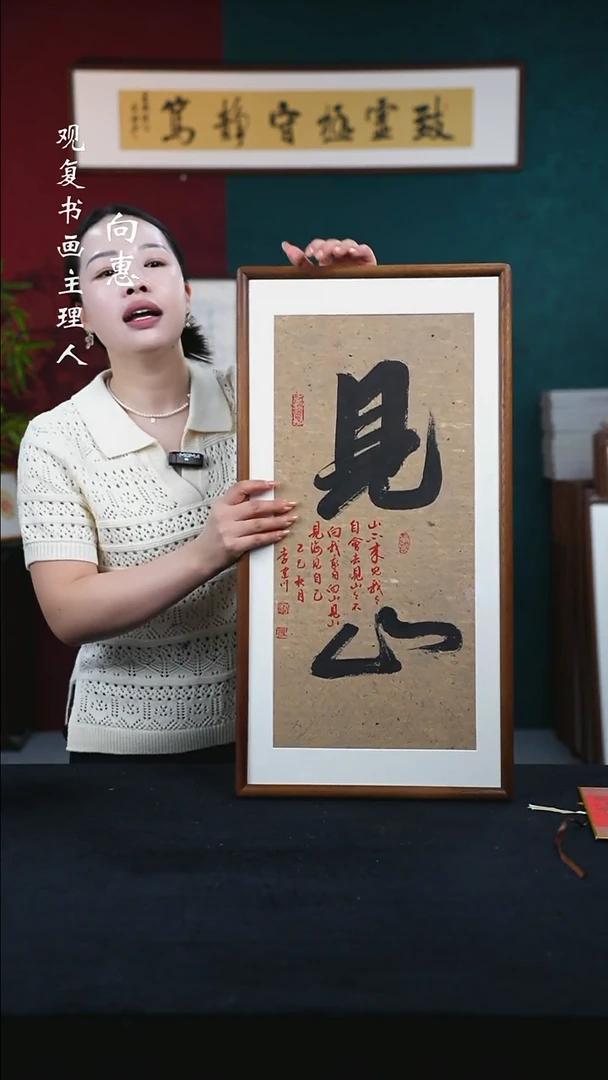 致虛極守靜篤
观复书画主理人
向惠
見山
山不來見我々
自會去見山々不
向我我自向山見山
見海見自己
乙巳秋月
李建川